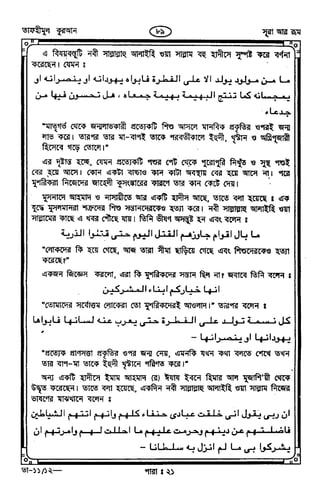 তাফহীমুল কুরআন
৮৯
সূরা আর রূম
এ বিষয়বস্তুটি নবী সাল্লাল্লাহু আলাইহি ওয়া সাল্লাম বহু হাদীসে সুস্পষ্ট করে বর্ণনা
করেছেন। যেমন :
ما من مولود يولد الا على الفطرة فابواه يهودانه او ينصرانه او
يمجسانه كما تنتج البهيمة بهيمة جمعاء ، هل تحسون فيها من
جدعاء
"মাতৃগর্ভ থেকে জন্মলাভকারী প্রত্যেকটি শিশু আসলে মানবিক প্রকৃতির ওপরই জন্ম
লাভ করে। তারপর তার মা-বাপই তাকে পরবর্তীকালে ইহুদী, খৃস্টান ও অগ্নিপূজারী
হিসেবে গড়ে তোলে।"
এর দৃষ্টান্ত হচ্ছে, যেমন প্রত্যেকটি পশুর পেট থেকে পুরোপুরি নিখুঁত ও সুস্থ পশুই
বের হয়ে আসে। কোন একটা বাচ্চাও কান কাটা অবস্থায় বের হয়ে আসে না। পরে
মুশরিকরা নিজেদের জাহেলী কুসংস্কারের কারণে তার কান কেটে দেয়।
মুসনাদে আহমাদ ও নাসায়ীতে আর একটি হাদীস আছে, তাতে বলা হয়েছে : এক
যুদ্ধে মুসলমানরা শত্রুদের শিশু সন্তানদেরকেও হত্যা করে। নবী সাল্লাল্লাহু আলাইহি ওয়া
সাল্লামের কাছে এ খবর পৌঁছে যায়। তিনি ভীষণ অসন্তুষ্ট হন এবং বলেন :
ما بال اقوام جاوزهم القتل اليوم حتى قتلوا الذرية
"লোকদের কি হয়ে গেছে, আজ তারা সীমা ছাড়িয়ে গেছে এবং শিশুদেরকেও হত্যা
করেছে?"
একজন জিজ্ঞেস করলো, এরা কি মুশরিকদের সন্তান ছিল না? জবাবে তিনি বলেন :
انما خياركم ابناء المشركين
"তোমাদের সর্বোত্তম লোকেরা তো মুশরিকদেরই আওলাদ।" তারপর বলেন :
كل نسمة تولد على الفطرة حتى يعرب عنه لسانها فابواها
يهودانها او ينصرانها -
"প্রত্যেক প্রাণসত্তা প্রকৃতির ওপর জন্ম নেয়, এমনকি যখন কথা বলতে শেখে তখন
তার বাপ-মা তাকে ইহুদী খৃস্টানে পরিণত করে।"
অন্য একটি হাদীসে ইমাম আহমাদ (র) ইয়ায ইবনে হিমার আল মুজাশি'য়ী থেকে
উদ্ধৃত করেছেন। তাতে বলা হয়েছে, একদিন নবী সাল্লাল্লাহু আলাইহি ওয়া সাল্লাম নিজের
ভাষণের মাঝখানে বলেন :
ان ربى يقول انى خلقت عبادى حنفاء كلهم وانهم اتتهم الشياطين
فاضلتهم عن دينهم وحرمت عليهم ما احللت لهم وامرتهم ان
يشركوا بى ما لم انزل به سلطانا -
তা-১১/১২—
পারা : ২১